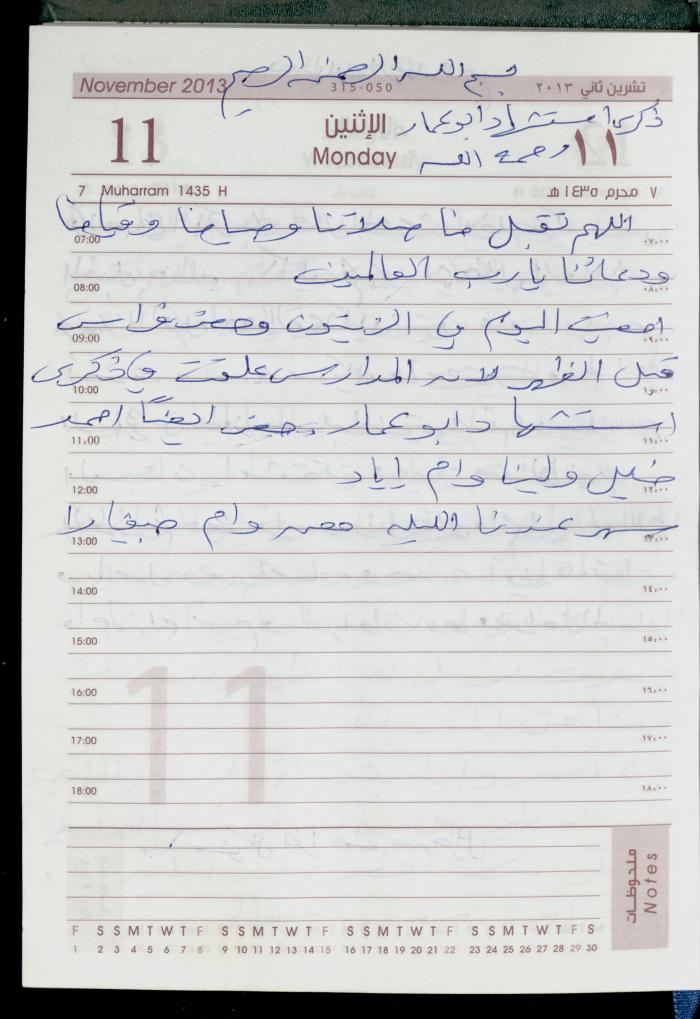 بسم الله الرحمن الرحيم
November 2013 315-050 تشرين ثاني ٢٠١٣
ذكرى استشهاد ابو عمار
رحمه الله
11 الإثنين ١١
Monday
7 Muharram 1435 H ٧ محرم ١٤٣٥ هـ
اللهم تقبل منا صلاتنا وصيامنا وقيامنا
07:00 ٠٧،٠٠
ودعائنا يارب العالمين
08:00 ٠٨،٠٠
اليوم في الزيتون
09:00 ٠٩،٠٠
قبل الظهر لانه المدارس علقت في ذكرى
10:00 ١٠،٠٠
استشهاد ابو عمار ايضاً احمد
11:00 ١١،٠٠
ولينا وام اياد
12:00 ١٢،٠٠
سهر عندنا الليله وام
13:00 ١٣،٠٠
14:00 ١٤،٠٠
15:00 ١٥،٠٠
16:00 ١٦،٠٠
11
17:00 ١٧،٠٠
18:00 ١٨،٠٠
ملحوظات
Notes
F S S M T W T F S S M T W T F S S M T W T F S S M T W T F S
1 2 3 4 5 6 7 8 9 10 11 12 13 14 15 16 17 18 19 20 21 22 23 24 25 26 27 28 29 30